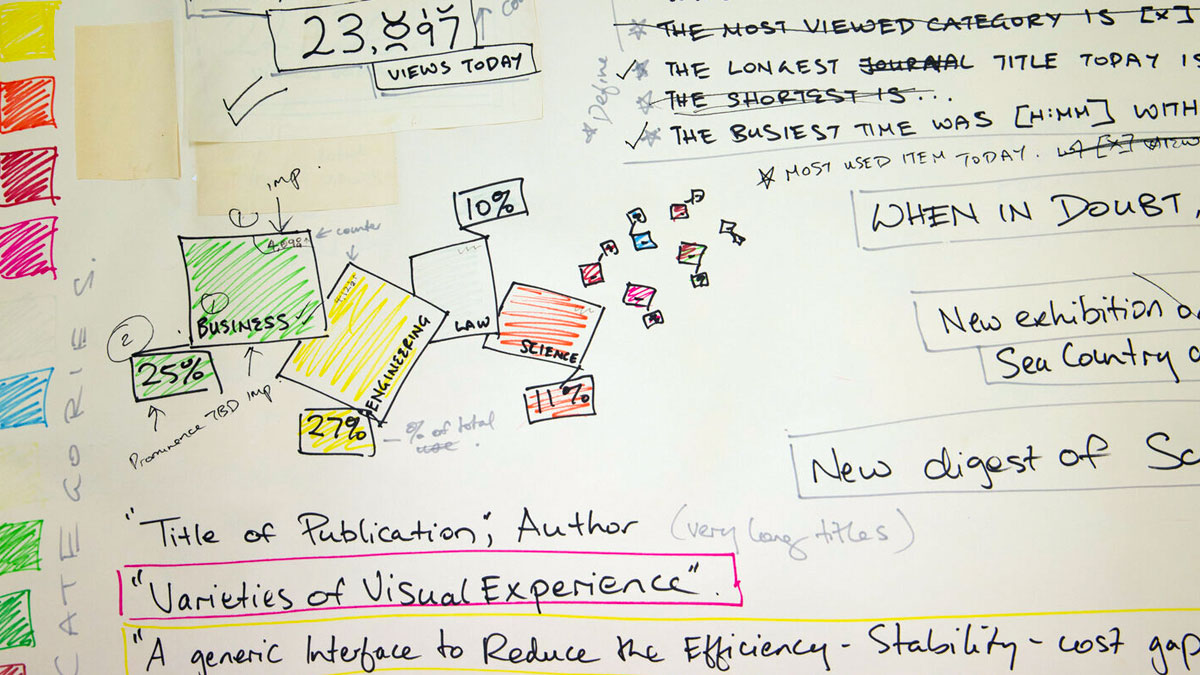 23,897
VIEWS TODAY
* THE MOST VIEWED CATEGORY IS [X]
* THE LONGEST JOURNAL TITLE TODAY IS
* THE SHORTEST IS...
* THE BUSIEST TIME WAS [H:MM] WITH
* Define
* MOST USED ITEM TODAY.
WHEN IN DOUBT,
New exhibition
Sea Country
New digest of Sc
imp.
1
← counter
1
BUSINESS
2
25%
Prominence TBD imp
4,122
ENGINEERING
27%
% of total
use.
10%
LAW
SCIENCE
11%
CATEGORIES.
"Title of Publication", Author (very long titles)
"Varieties of Visual Experience".
"A generic Interface to Reduce the Efficiency - Stability - cost gap